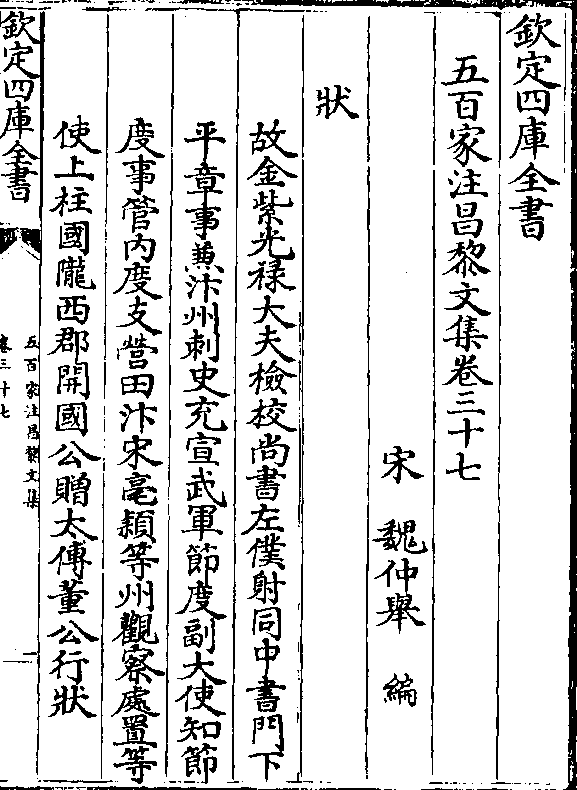 欽定四庫全書
五百家注昌黎文集卷三十七
宋 魏仲舉 編
狀
故金紫光禄大夫檢校尚書左僕射同中書門下
平章事兼汴州刺史充宣武軍節度副大使知節
度事管内度支營田汴宋亳頴等州觀察處置等
使上柱國隴西郡開國公贈太傅董公行狀
欽定四庫全書
五百家注昌黎文集
卷三十七
一